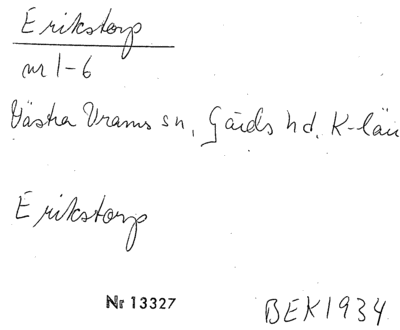 Erikstorp
nr 1-6
Västra Vrams sn, Gärds hd, K-län
Erikstorp
Nr 13327
BEK1934